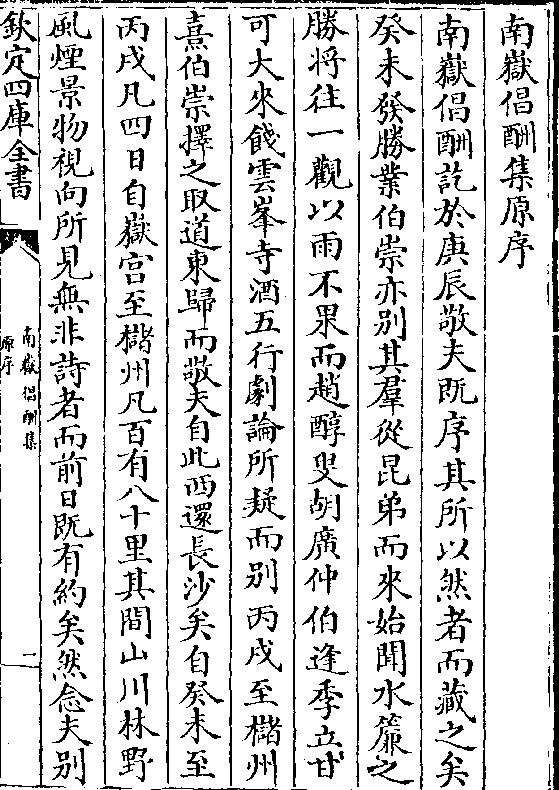 南嶽倡酬集原序
南嶽倡酬訖於庚辰敬夫既序其所以然者而藏之矣
癸未發勝業伯崇亦别其羣從昆弟而來始聞水簾之
勝将往一觀以雨不果而趙醇叟胡廣仲伯逢季立甘
可大來餞雲峯寺酒五行劇論所疑而别丙戌至櫧州
熹伯崇擇之取道東歸而敬夫自此西還長沙矣自癸未至
丙戌凡四日自嶽宫至櫧州凡百有八十里其間山川林野
風煙景物視向所見無非詩者而前日既有約矣然念夫别
欽定四庫全書
南嶽倡酬集
原序
一